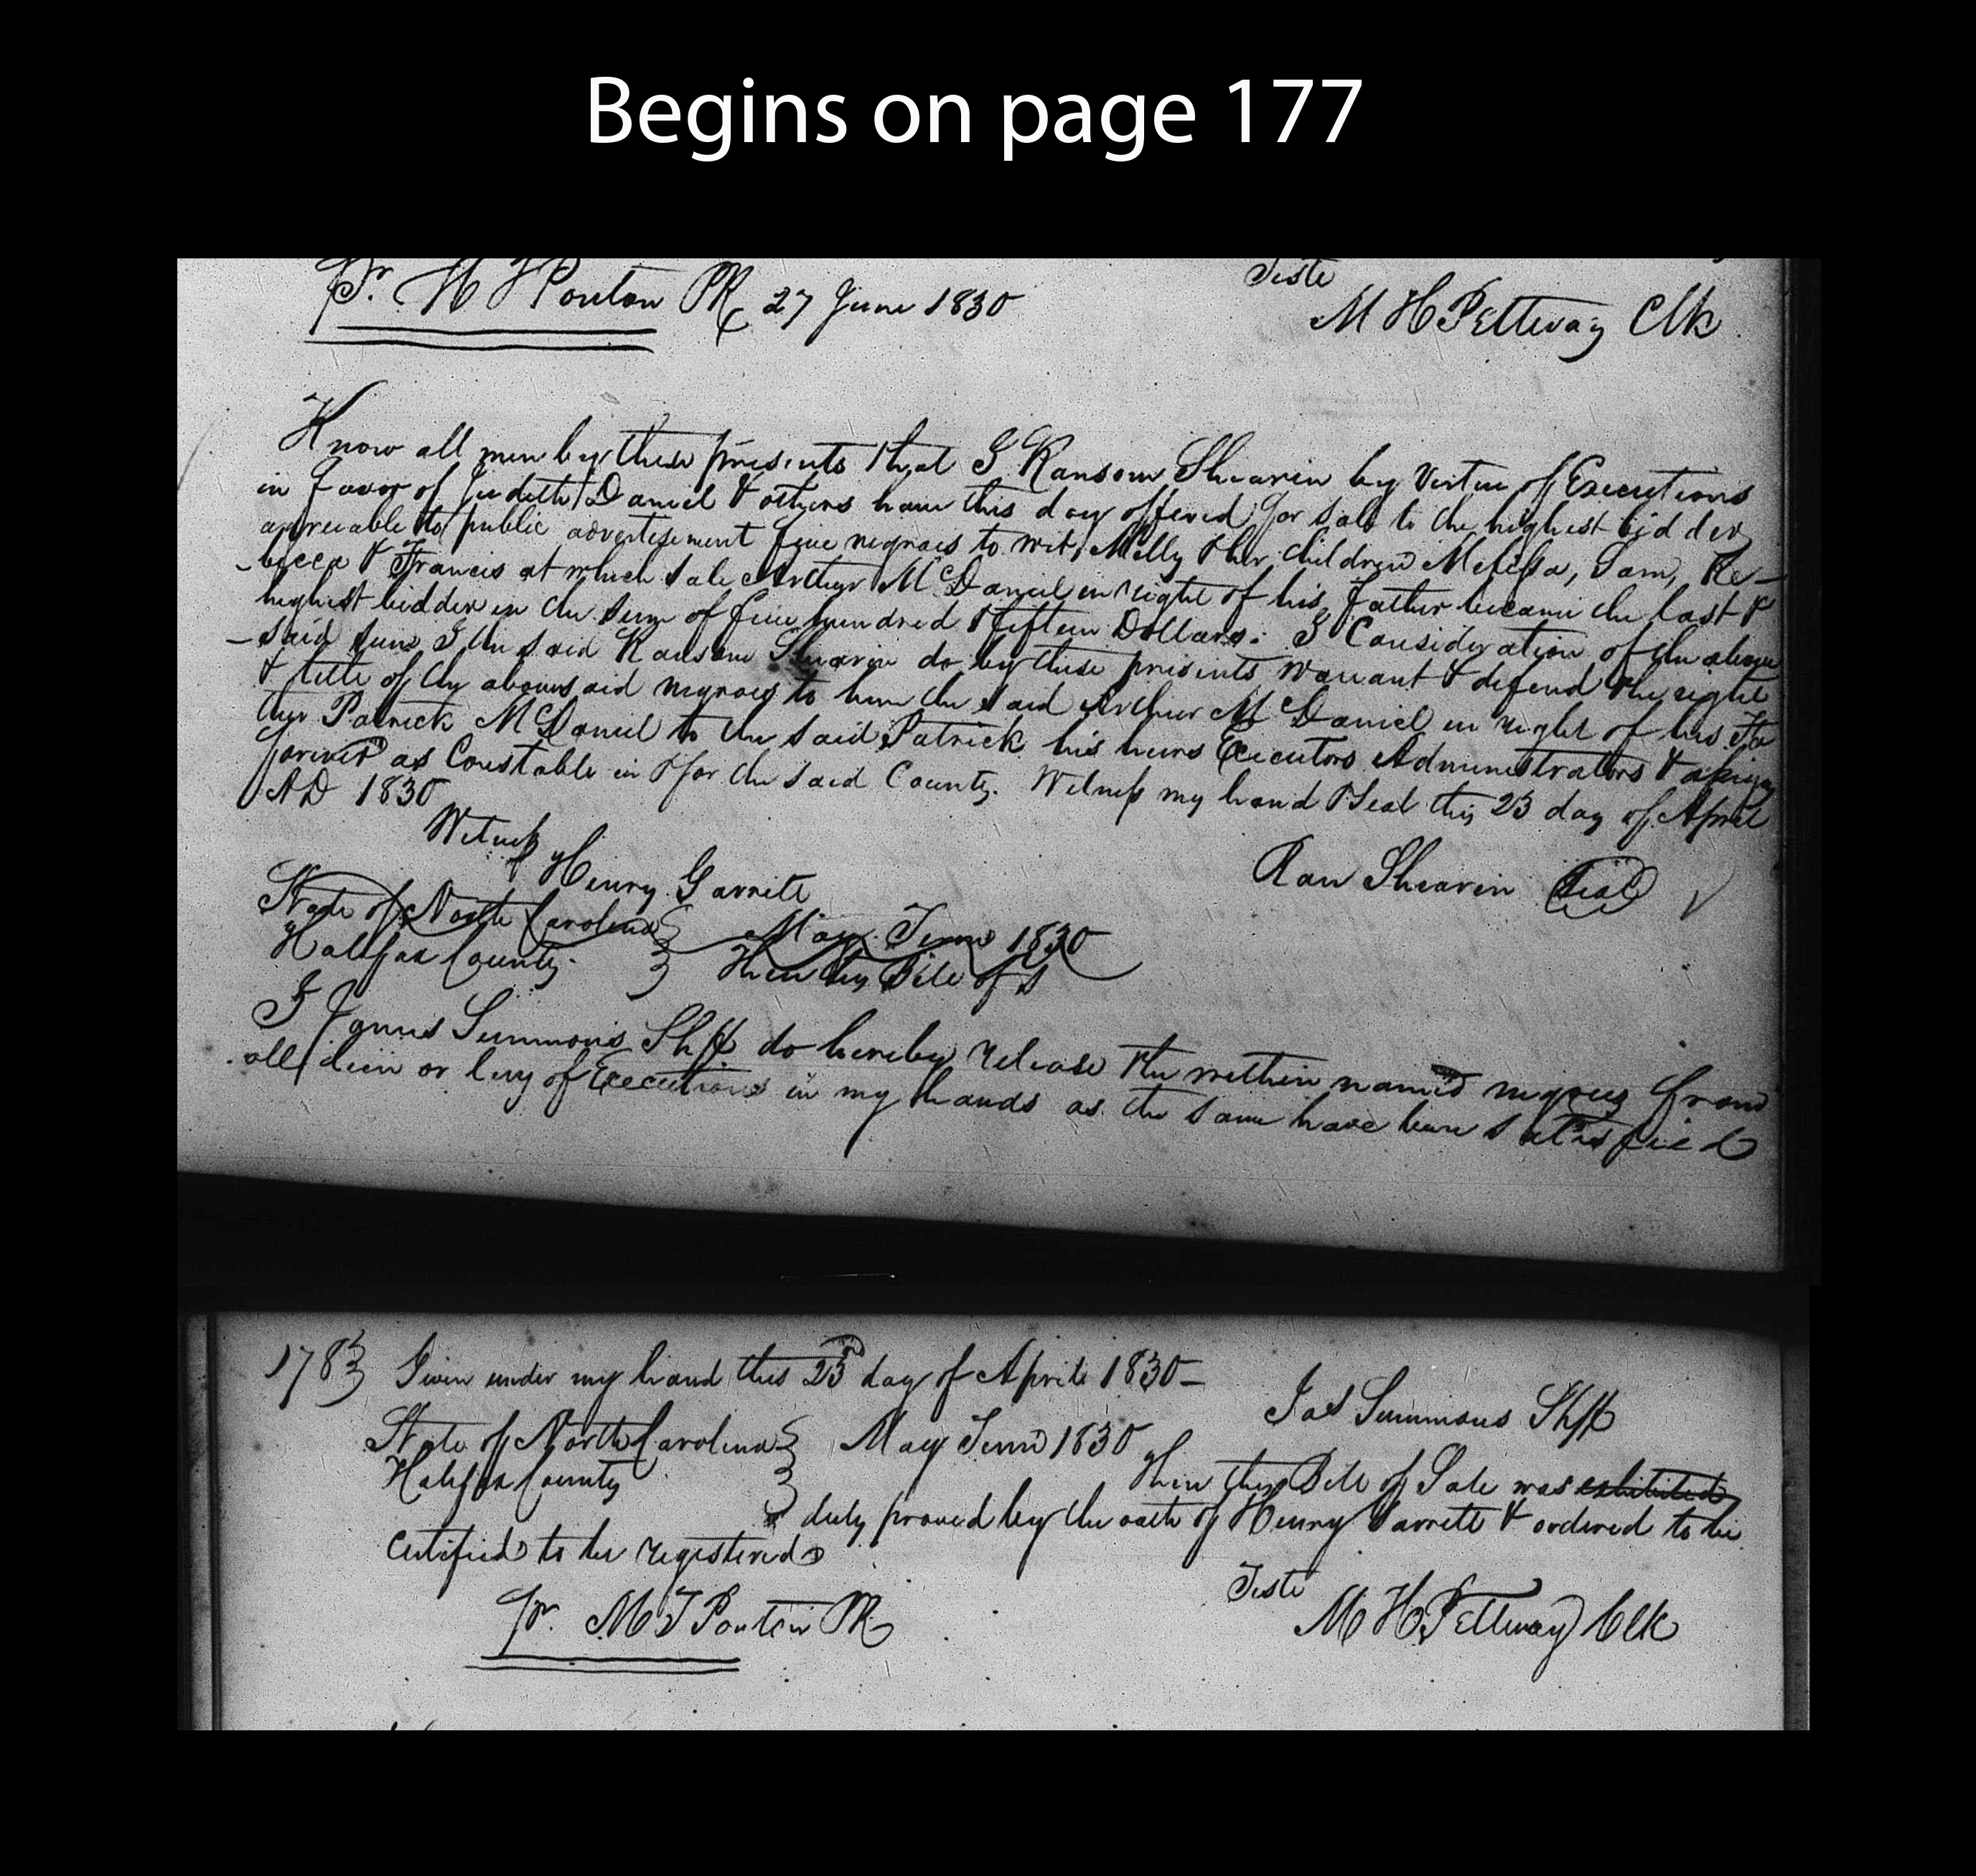 Begins on page 177
Pr. M T Ponton PR 27 June 1830
Teste
M H Pettway Clk
Know all men by these presents that I Ransom Shearin by Virtue of Executions
in favor of Judith Daniel & others have this day offered for sale to the highest bidder
agreeable to public advertisement five negroes to wit, Milly & her children Melissa, Sam, Re-
-becca & Francis at which sale Arthur McDaniel in right of his father became the last &
highest bidder in the sum of five hundred & fifteen Dollars. I Consideration of the above
-said sum I the said Ransom Shearin do by these presents warrant & defend the right
& title of the abovesaid negroes to him the said Arthur McDaniel in right of his Fa
ther Patrick McDaniel to the said Patrick his heirs Executors Administrators & assigns
forever as Constable in & for the said County. Witness my hand & Seal this 23 day of April
AD 1830
Witness
Henry Garrett
Ran Shearin Seal
State of North Carolina } May Term 1830
Halifax County } Then this Bile of S
I James Simmons Shff do hereby release the within named negroes from
all lien or levy of Executions in my hands as the same have been satisfied
178} Given under my hand this 23rd day of Aprile 1830 -
Jas Simmons Shff
State of North Carolina } May Term 1830
Halifax County } Then this Bile of Sale was exhibited
duly proved by the oath of Henry Garrett & ordered to be
Certified to be registered
Teste
Pr. M T Ponton PR
M H Pettway Clk